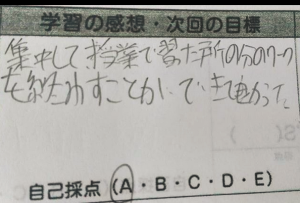 学習の感想・次回の目標
集中して授業で習った所の分のワーク
を終わすことができて良かった。
自己採点(A・B・C・D・E)